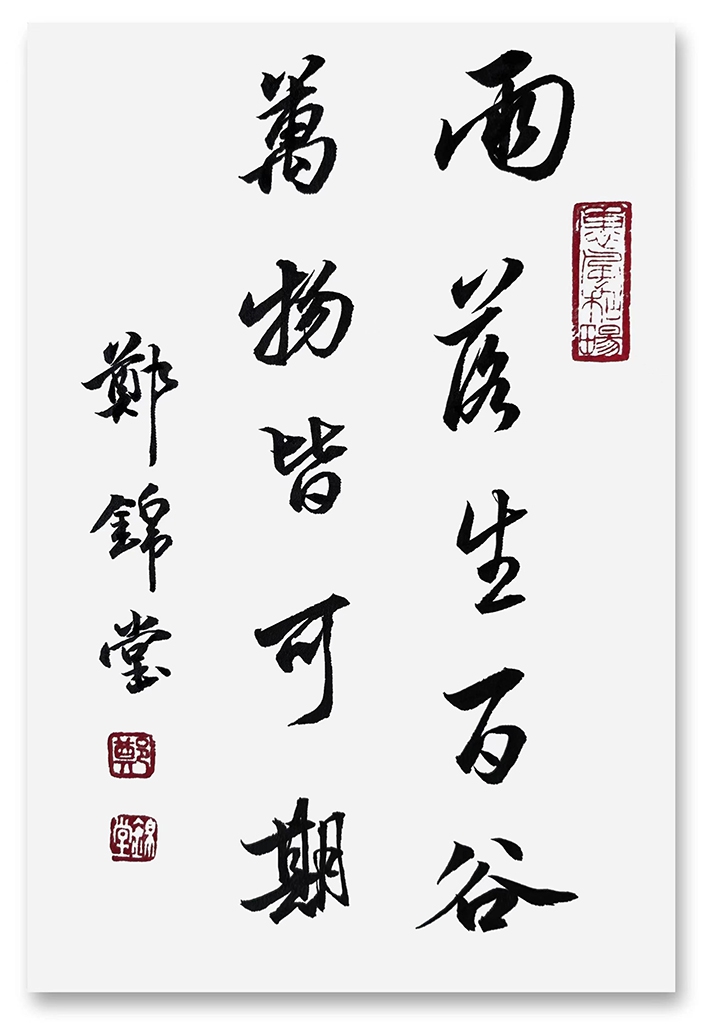 雨落生百谷
萬物皆可期
鄭錦堂
鄭
錦堂